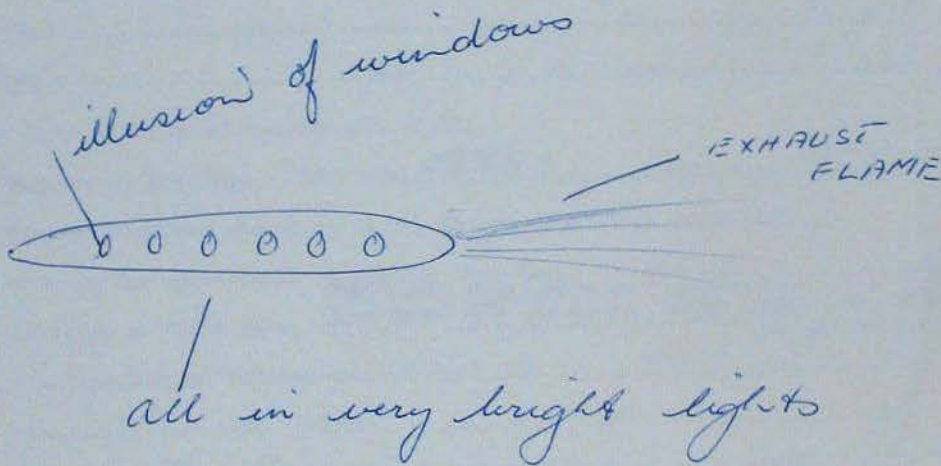 illusion of windows
EXHAUST
FLAME
all in very bright lights